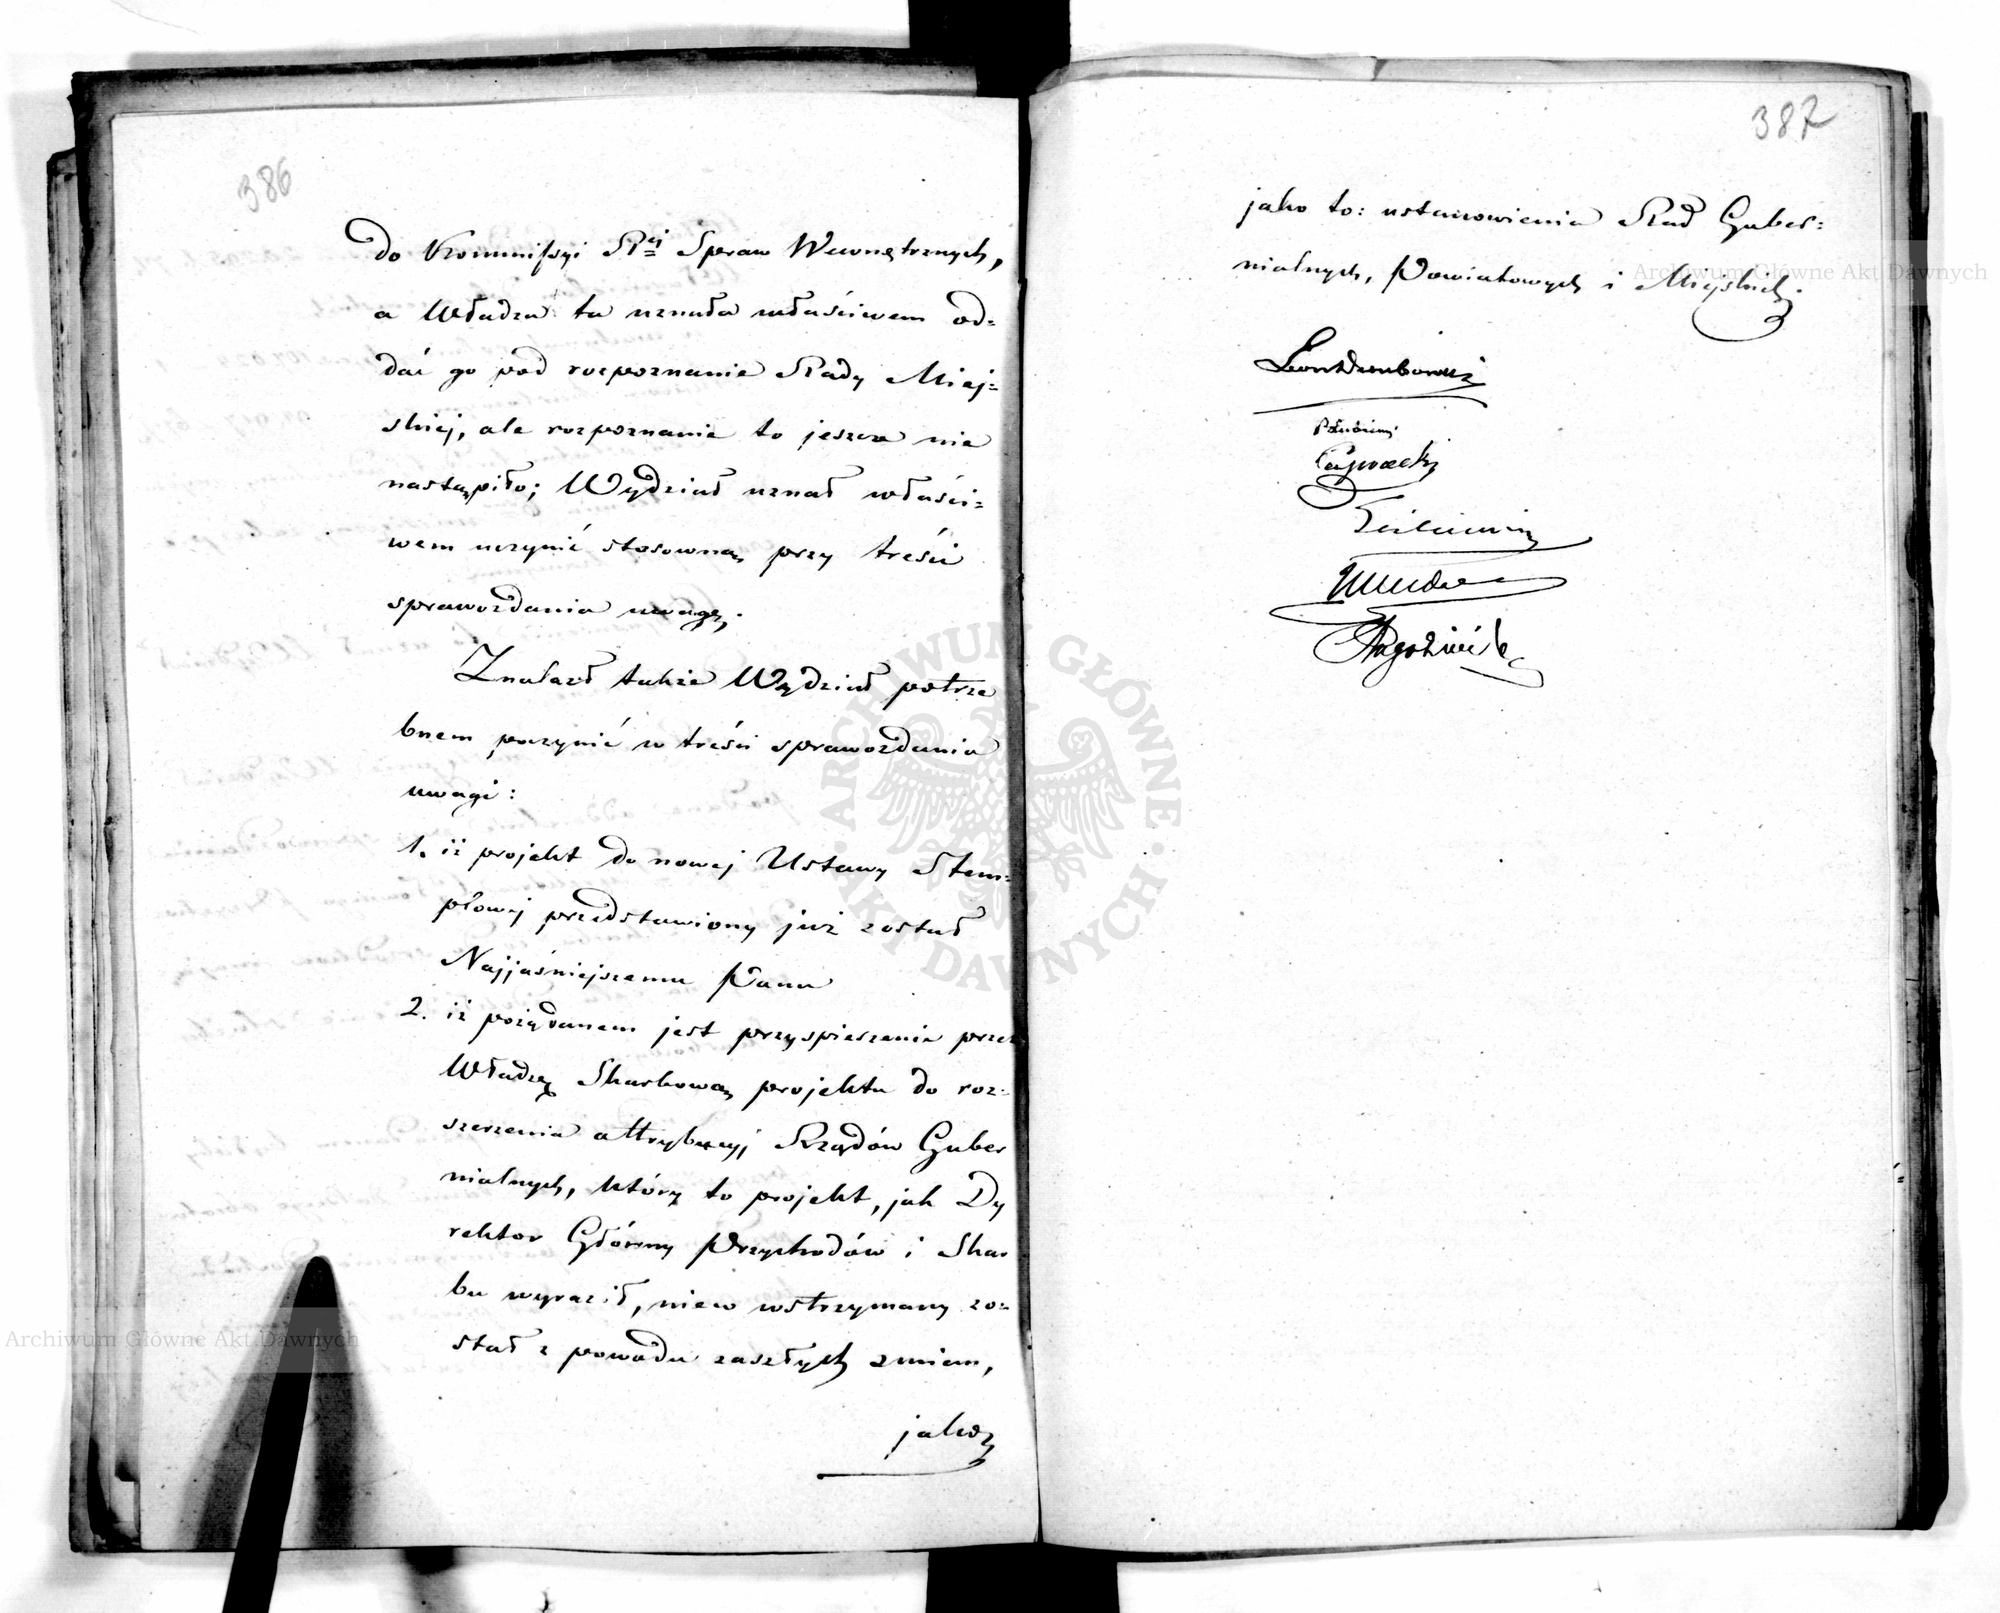 386
do Kommissyi Rei Spraw Wewnętrznych,
a Władza ta uznała właściwem od=
dać go pod rozpoznanie Rady Miej=
skiej, ale rozpoznanie to jeszcze nie
nastąpiło; Wydział uznał właści=
wem uczynić stosowną przy treści
sprawozdania uwagę.
Znalazł także Wydział potrze
bnem poczynić w treści sprawozdania
uwagi:
1. iż projekt do nowej Ustawy Stem=
plowej przedstawiony już został
Najjaśniejszemu Panu
2. iż pożądanem jest przyspieszenie przez
Władzę Skarbową projektu do roz=
szerzenia attrybucyj Rządów Guber
nialnych, który to projekt, jak Dy
rektor Główny Przychodów i Skar
bu wyraził, wstrzymany zo=
stał z powodu zaszłych zmian,
jako
387
jako to: ustanowienia Rad Guber=
nialnych, Powiatowych i Miejskich.
ARCHIWUM GŁÓWNE AKT DAWNYCH
Archiwum Główne Akt Dawnych
Archiwum Główne Akt Dawnych